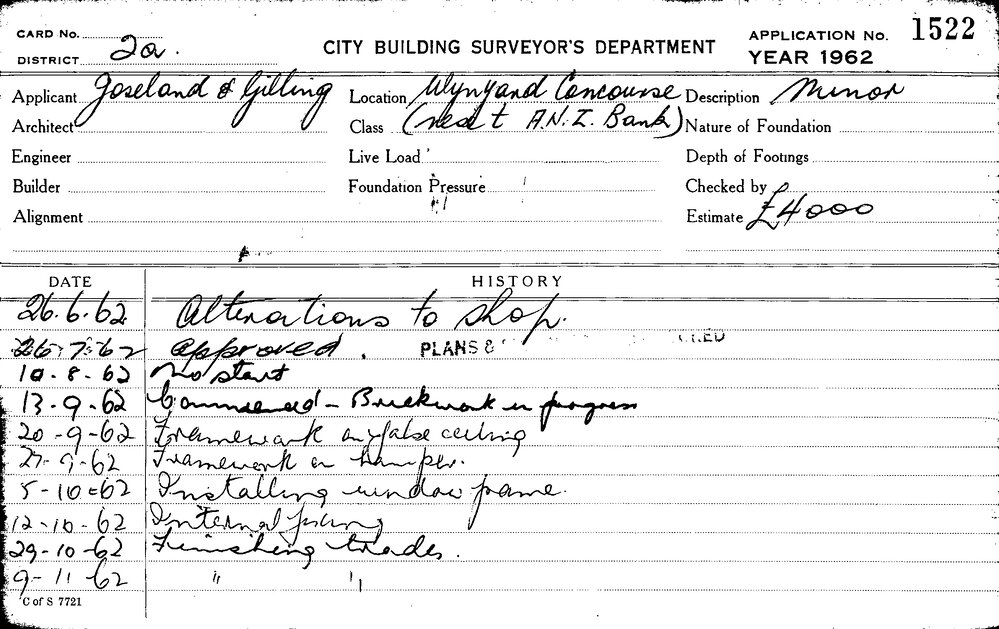 CARD No.
DISTRICT 2a.
CITY BUILDING SURVEYOR'S DEPARTMENT
APPLICATION No. 1522
YEAR 1962
Applicant Joseland & Gilling Location Wynyard Concourse Description Minor
Architect Class (next A.N.Z. Bank) Nature of Foundation
Engineer Live Load Depth of Footings
Builder Foundation Pressure Checked by
Alignment Estimate £4000
DATE HISTORY
26.6.62 Alterations to shop.
26.7.62 Approved. PLANS &
10-8-62 No start
13-9-62 Commenced - Brickwork in progress
20-9-62 Framework on false ceiling
27-9-62 Framework on hamper.
5-10-62 Installing window frame.
12-10-62 Internal fixing
29-10-62 Finishing trades.
9-11-62 " "
C of S 7721